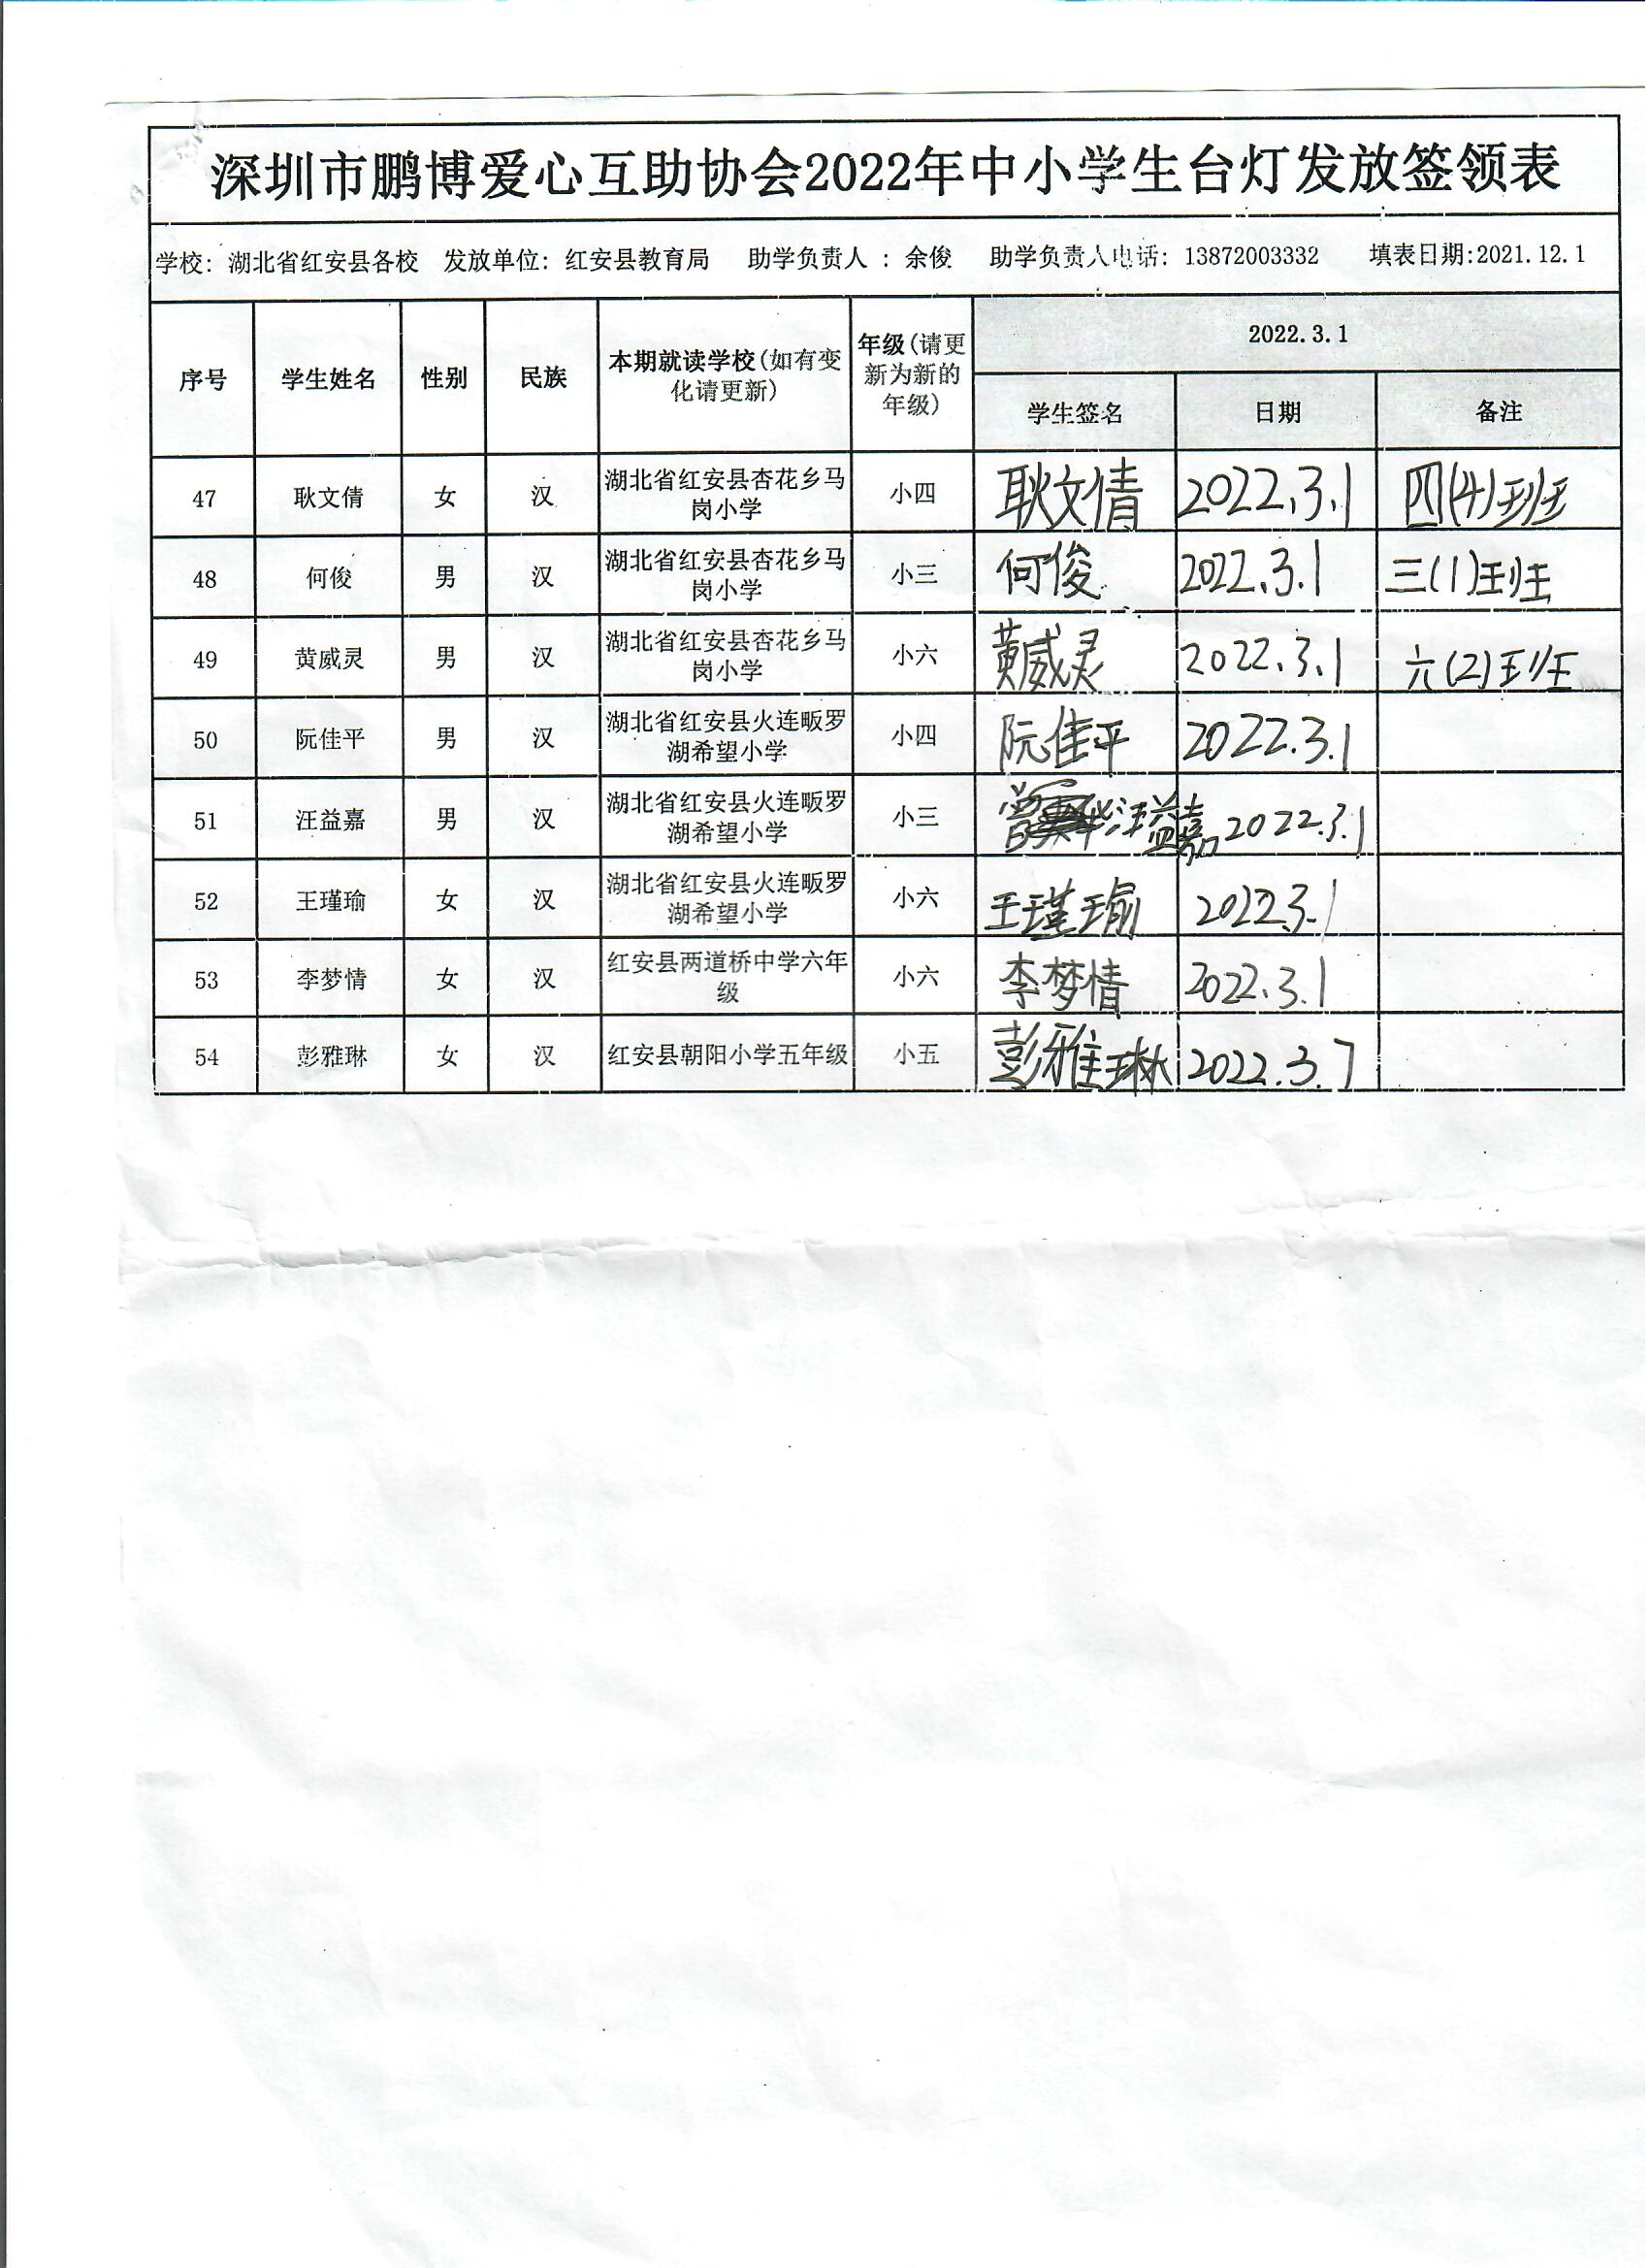 深圳市鹏博爱心互助协会2022年中小学生台灯发放签领表
学校：湖北省红安县各校 发放单位：红安县教育局 助学负责人：余俊 助学负责人电话：13872003332 填表日期:2021.12.1
序号 学生姓名 性别 民族 本期就读学校(如有变化请更新) 年级(请更新为新的年级) 2022.3.1
学生签名 日期 备注
47 耿文倩 女 汉 湖北省红安县杏花乡马岗小学 小四 耿文倩 2022.3.1 四(4)班
48 何俊 男 汉 湖北省红安县杏花乡马岗小学 小三 何俊 2022.3.1 三(1)班
49 黄威灵 男 汉 湖北省红安县杏花乡马岗小学 小六 黄威灵 2022.3.1 六(2)班
50 阮佳平 男 汉 湖北省红安县火连畈罗湖希望小学 小四 阮佳平 2022.3.1
51 汪益嘉 男 汉 湖北省红安县火连畈罗湖希望小学 小三 汪益嘉 2022.3.1
52 王瑾瑜 女 汉 湖北省红安县火连畈罗湖希望小学 小六 王瑾瑜 2022.3.1
53 李梦情 女 汉 红安县两道桥中学六年级 小六 李梦情 2022.3.1
54 彭雅琳 女 汉 红安县朝阳小学五年级 小五 彭雅琳 2022.3.7